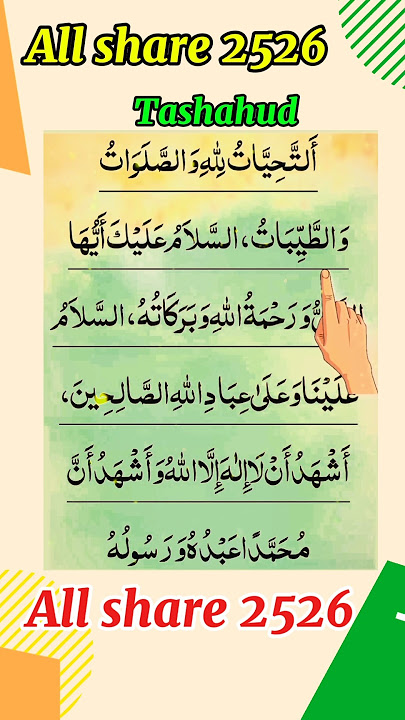 All share 2526
Tashahud
أَلتَّحِيَّاتُ لِلّٰهِ وَالصَّلَوَاتُ
وَالطَّيِّبَاتُ، السَّلاَمُ عَلَيْكَ أَيُّهَا
وَرَحْمَةُ اللهِ وَبَرَكَاتُهُ، السَّلاَمُ
عَلَيْنَا وَعَلَىٰ عِبَادِ اللهِ الصَّالِحِينَ،
أَشْهَدُ أَنْ لَا إِلٰهَ إِلَّا اللهُ وَأَشْهَدُ أَنَّ
مُحَمَّدًا عَبْدُهُ وَرَسُولُهُ
All share 2526